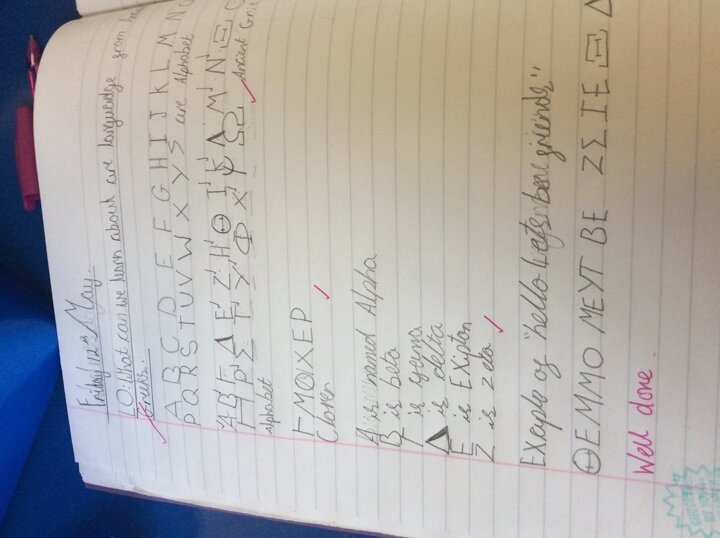 Friday 12th May
LO: What can we learn about are language from
Greeks.
A B C D E F G H I J K L M N
P Q R S T U V W X Y S are Alphabet
A' B' Γ' Δ E' Z' H' Θ I' K' Λ' M' N' Ξ
Π' P' Σ' T' Y' Φ X' Ψ' Ω' Ancient
alphabet
Clover
A is named Alpha
B is beta
Γ is
Δ is delta
E is EXipton
Z is zeta
Example of "hello lets be friends"
ΘEMMO MEYT BE ZΣIEΞΔ
Well done.